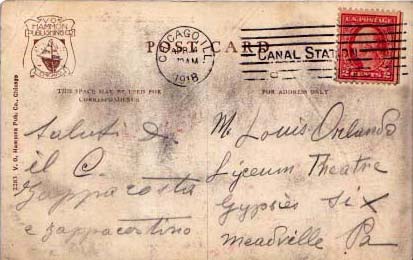 V.O.
HAMMON
PUBLISHING CO.
CHICAGO
POST CARD
CHICAGO, ILL.
APR
AM
1918
CANAL STATION
U.S. POSTAGE
2 CENTS 2
THIS SPACE MAY BE USED FOR
CORRESPONDENCE
FOR ADDRESS ONLY
2283 V. O. Hammon Pub. Co., Chicago
Saluti da
il C.
Zappacosta
e zappacostino
M. Louis Orlando
Lyceum Theatre
Gypsies Six
Meadville Pa